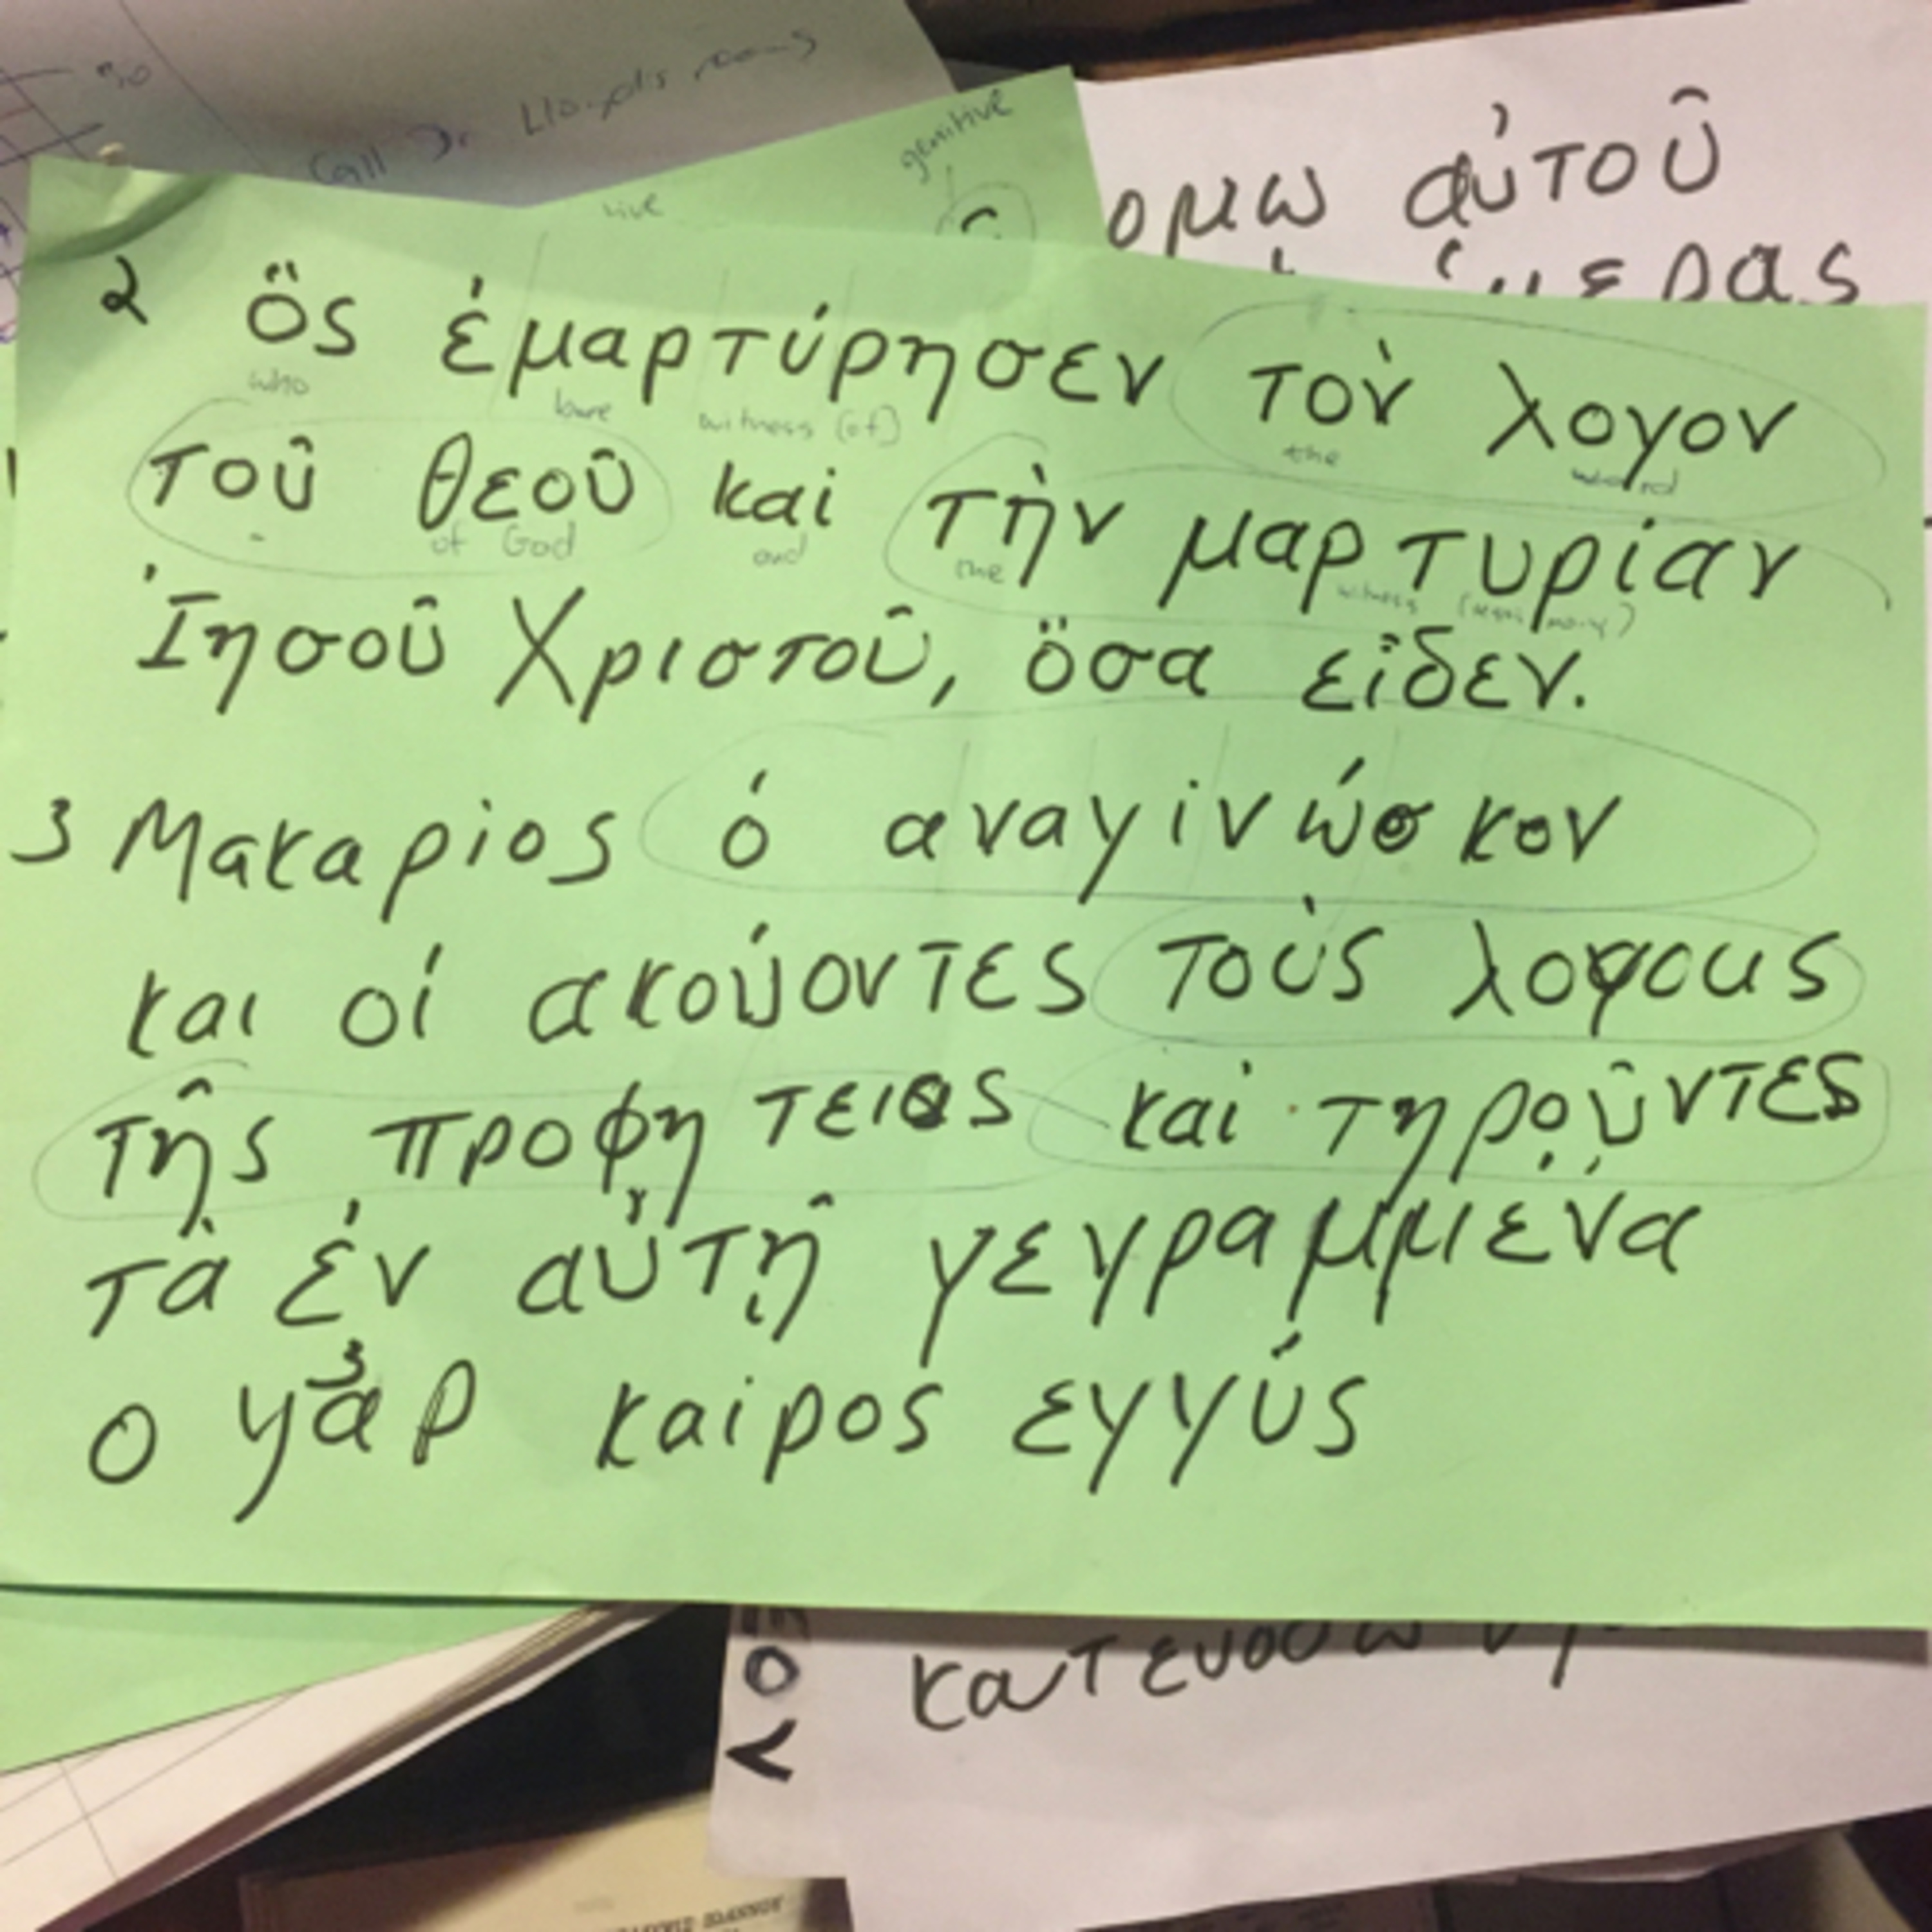 Call Dr Lloyd's rooms
genitive
ομω αὐτοῦ
2 ὃς ἐμαρτύρησεν τὸν λογον
who bare witness (of) the word
τοῦ θεοῦ καὶ τὴν μαρτυρίαν
of God and the witness (testimony)
Ἰησοῦ Χριστοῦ, ὅσα εἶδεν.
3 Μακαριος ὁ αναγινώσκον
και οἱ ακούοντες τοὺς λογους
τῆς προφητειας καὶ τηροῦντες
τὰ ἐν αὐτῇ γεγραμμένα
ο γὰρ καιρος εγγύς